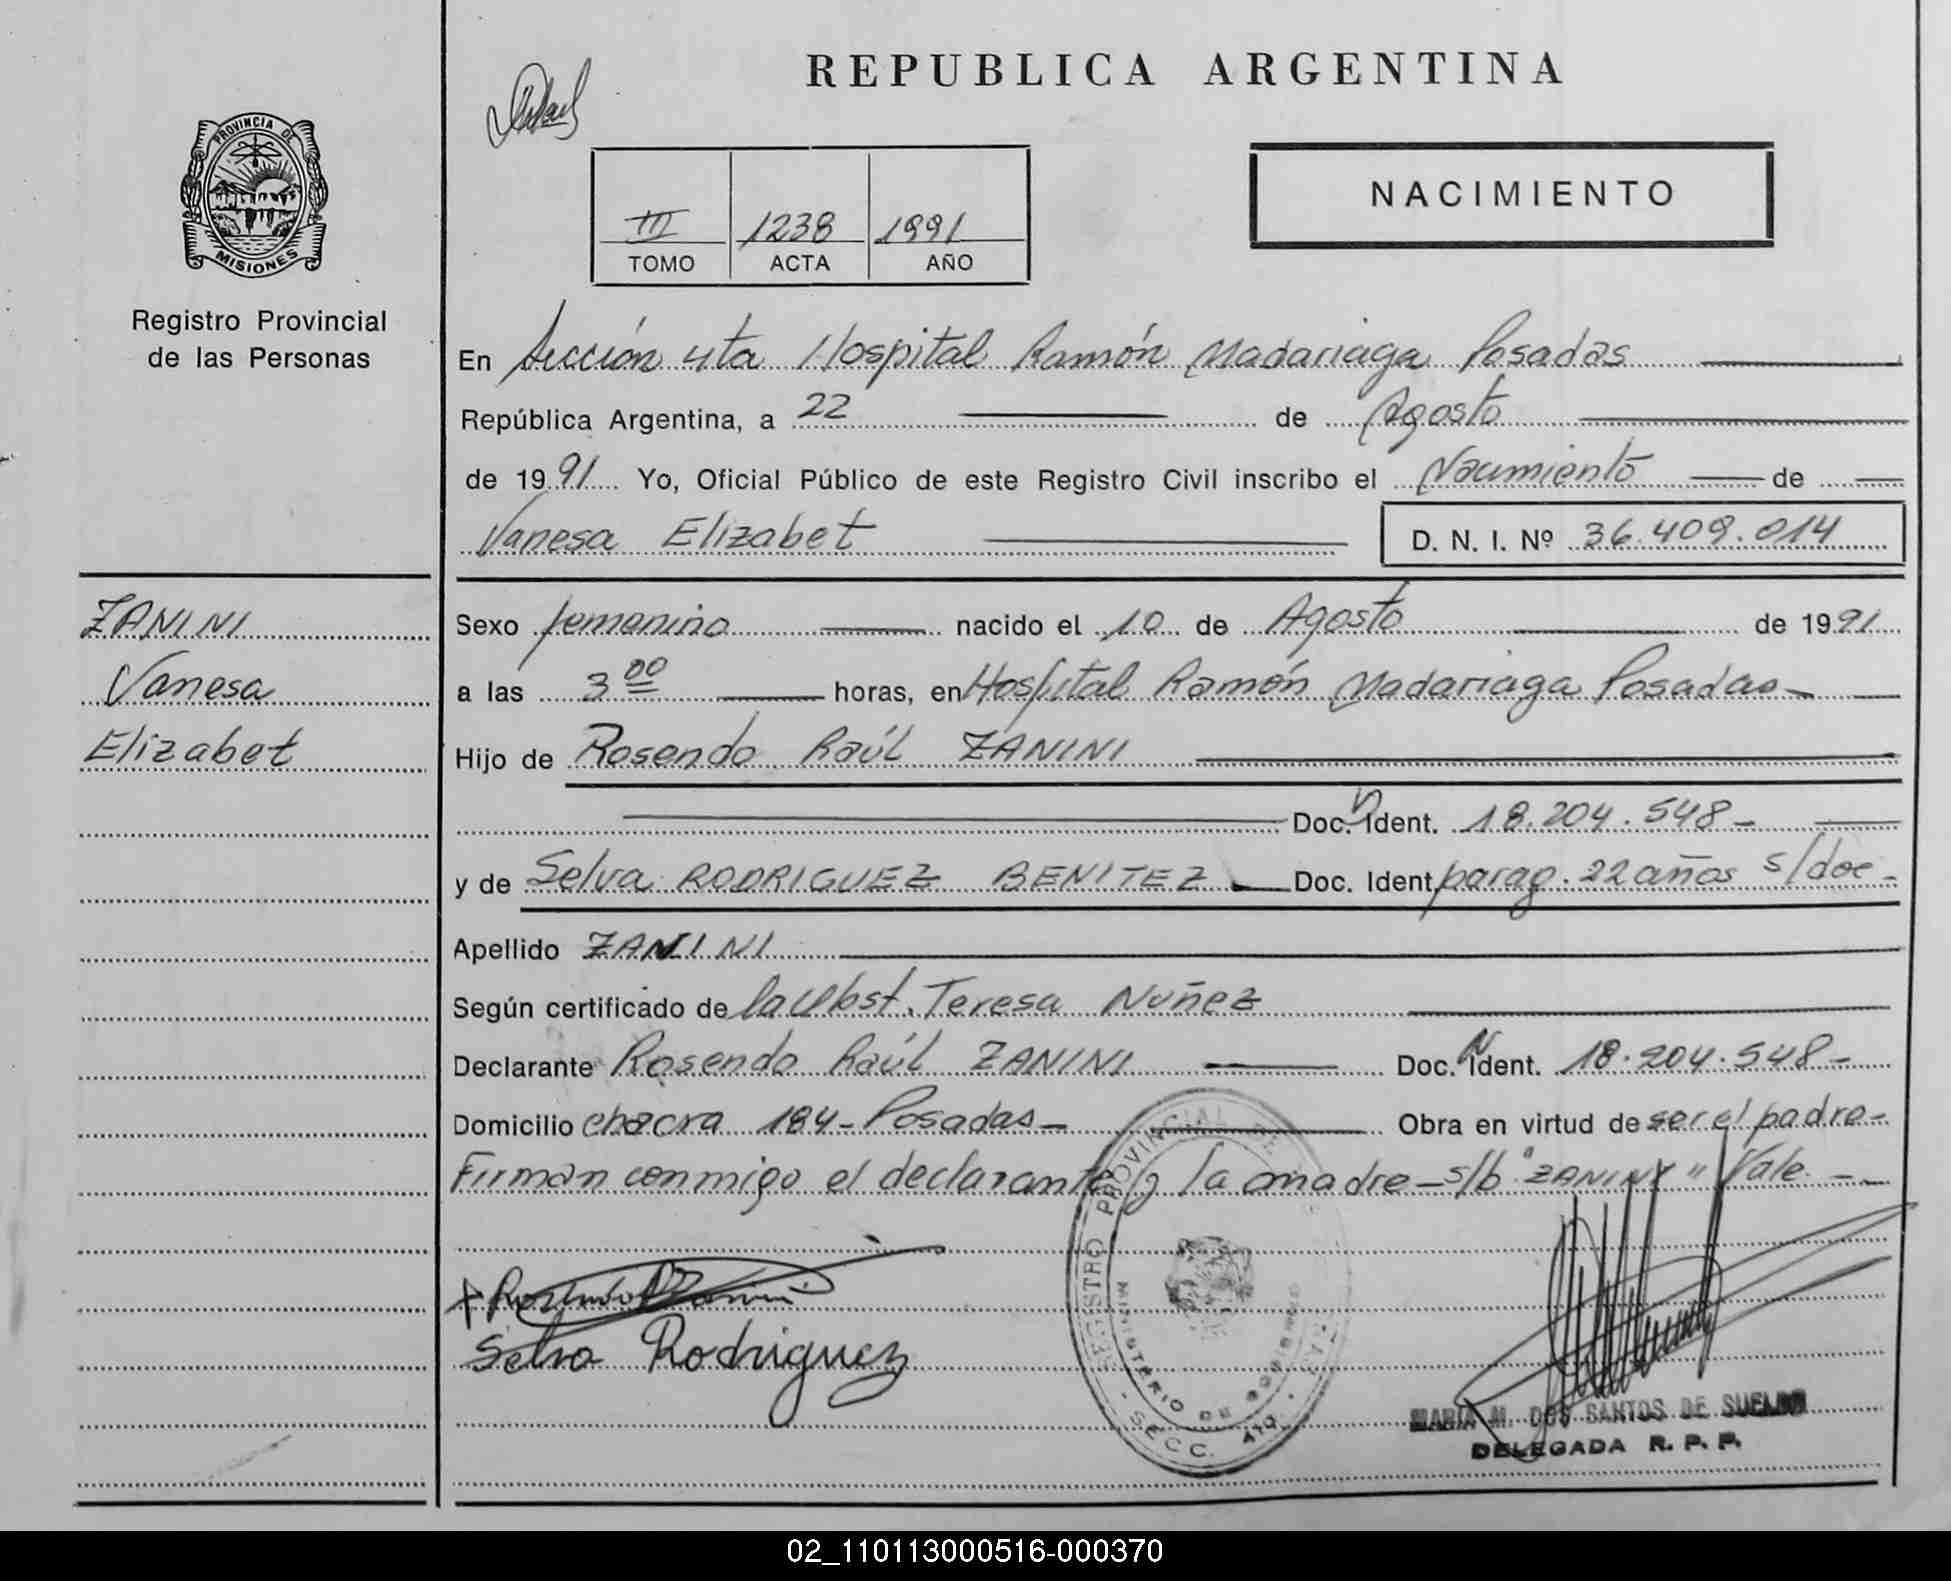 REPUBLICA ARGENTINA
PROVINCIA DE
MISIONES
Registro Provincial
de las Personas
III 1238 1991
TOMO ACTA AÑO
NACIMIENTO
En Sección 4ta Hospital Ramón Madariaga Posadas
República Argentina, a 22 de Agosto
de 1991 Yo, Oficial Público de este Registro Civil inscribo el Nacimiento de
Vanesa Elizabet D. N. I. Nº 36.409.014
ZANINI
Vanesa
Elizabet
Sexo femenino nacido el 10 de Agosto de 1991
a las 3 00 horas, en Hospital Ramón Madariaga Posadas
Hijo de Rosendo Raúl ZANINI
Doc. N Ident. 18.204.548-
y de Selva RODRIGUEZ BENITEZ Doc. Ident. parag. 22 años s/doc-
Apellido ZANINI
Según certificado de la Obst. Teresa Nuñez
Declarante Rosendo Raúl ZANINI Doc. N Ident. 18.204.548-
Domicilio chacra 184- Posadas- Obra en virtud de ser el padre-
Firman conmigo el declarante y la madre-s/b "ZANINI" Vale
Selva Rodriguez
REGISTRO PROVINCIAL DE LAS
MINISTERIO DE GOBIERNO
SECC. 4ta.
MARIA M. DOS SANTOS DE SUELDO
DELEGADA R. P. P.
02_110113000516-000370